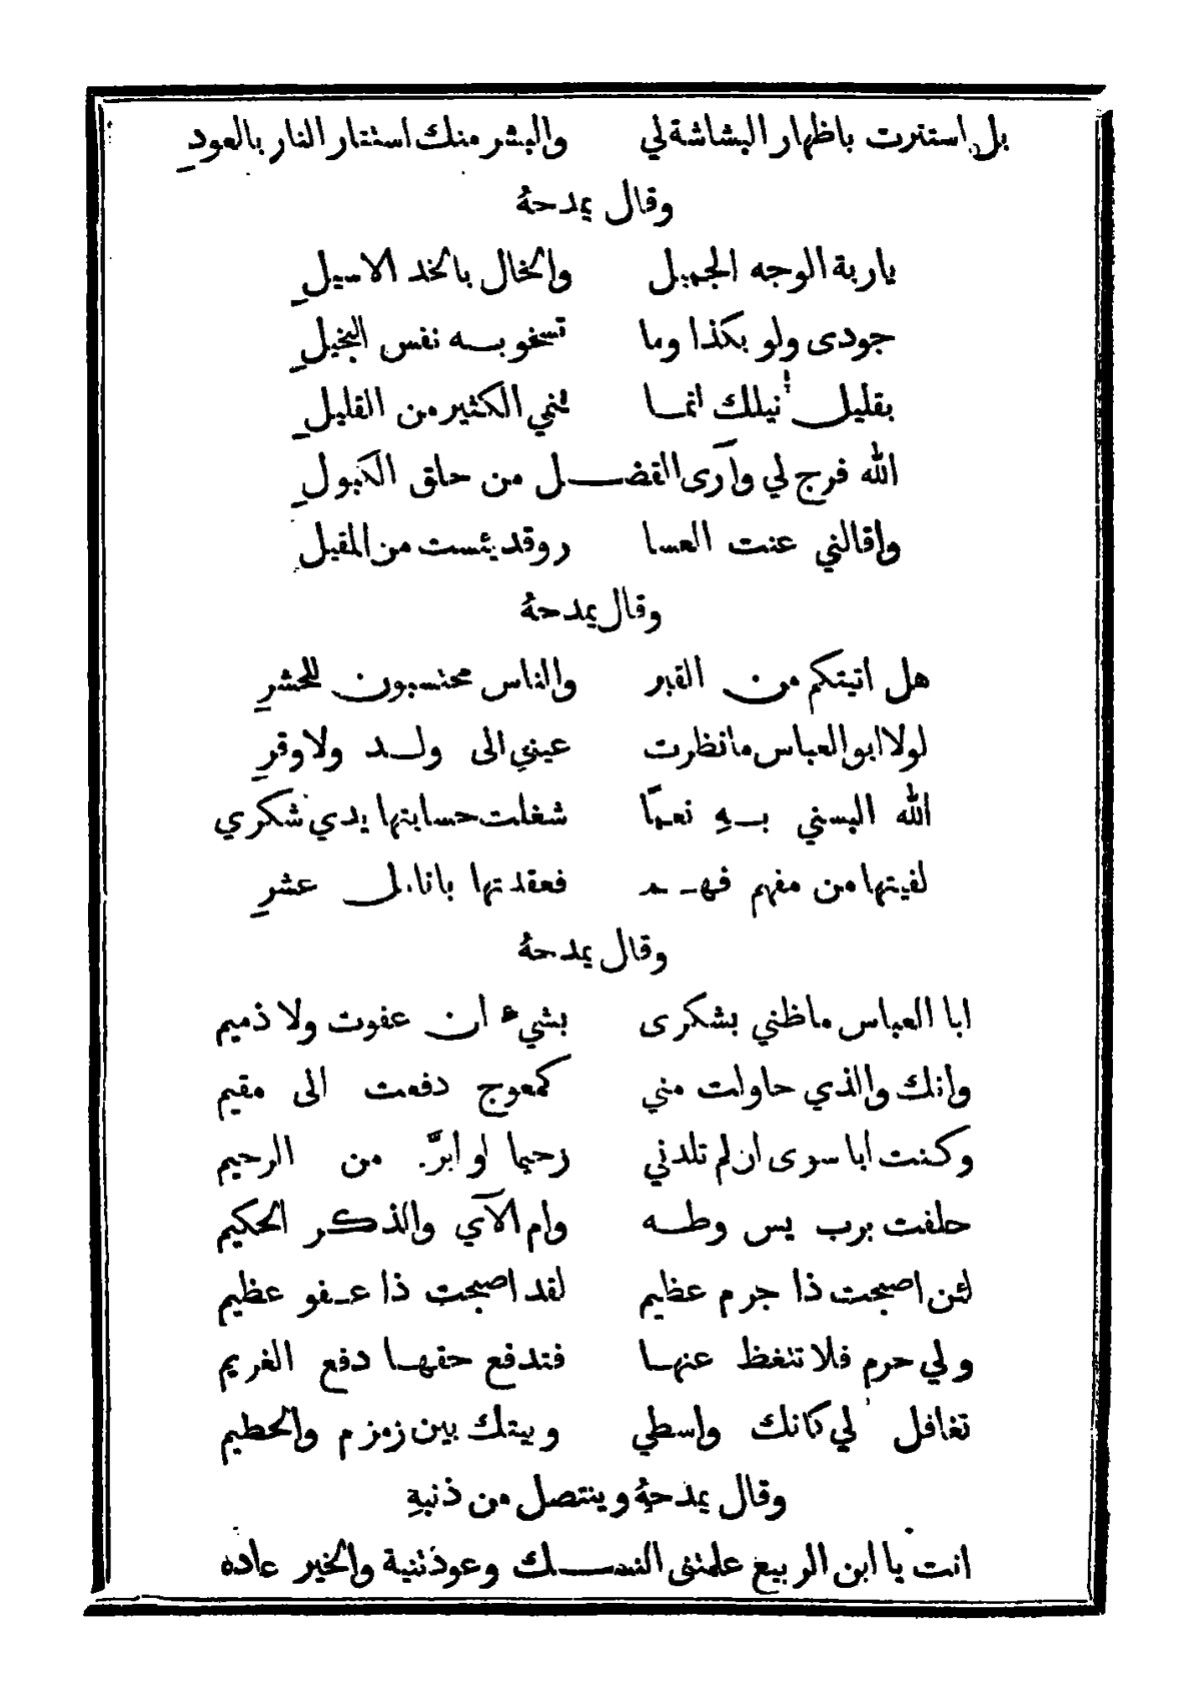 بل استترت باظهار البشاشة لي والبشر منك استتار النار بالعودِ
وقال يمدحهُ
ياربة الوجه الجميل والخال بالخد الاسيلِ
جودى ولو بكذا وما تسخو بــه نفس البخيلِ
بقليل نيلك انمــا ننمي الكثير من القليلِ
الله فرج لي وآرى القضــــل من حلق الكبولِ
واقالني عنت العسا ر وقد يئست من المقيل
وقال يمدحهُ
هل اتيتكم من القبر والناس محتسبون للحشرِ
لولا ابو العباس ما نظرت عيني الى ولــد ولا وقرِ
الله البسني بــهِ نعمًا شغلت حسابتها يدي شكري
لقيتها من مفهم فهــم فعقدتها بانامل عشرِ
وقال يمدحهُ
ابا العباس ماظني بشكرى بشيء ان عفوت ولا ذميم
وانك والذي حاولت مني كمعوج دفعت الى مقيم
وكنت ابا سوى ان لم تلدني رحيما او ابرَّ من الرحيم
حلفت برب يس وطــه وام الآي والذكر الحكيم
لئن اصبحت ذا جرم عظيم لقد اصبحت ذا عــفو عظيم
ولي حرم فلا تنغظ عنهــا فتدفع حقهــا دفع الغريم
تغافل لي كانك واسطي وبيتك بين زمزم والحطيم
وقال يمدحهُ وينتصل من ذنبهِ
انت يا ابن الربيع علمتنى النســــك وعودتنيه والخير عاده